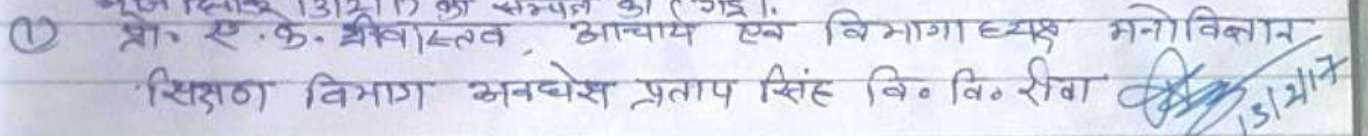 दिनांक 13/2/17 को सम्पन्न की गई।
① प्रो. ए. के. श्रीवास्तव, आचार्य एवं विभागाध्यक्ष मनोविज्ञान
शिक्षण विभाग अवधेश प्रताप सिंह वि॰ वि॰ रीवा 13/2/17